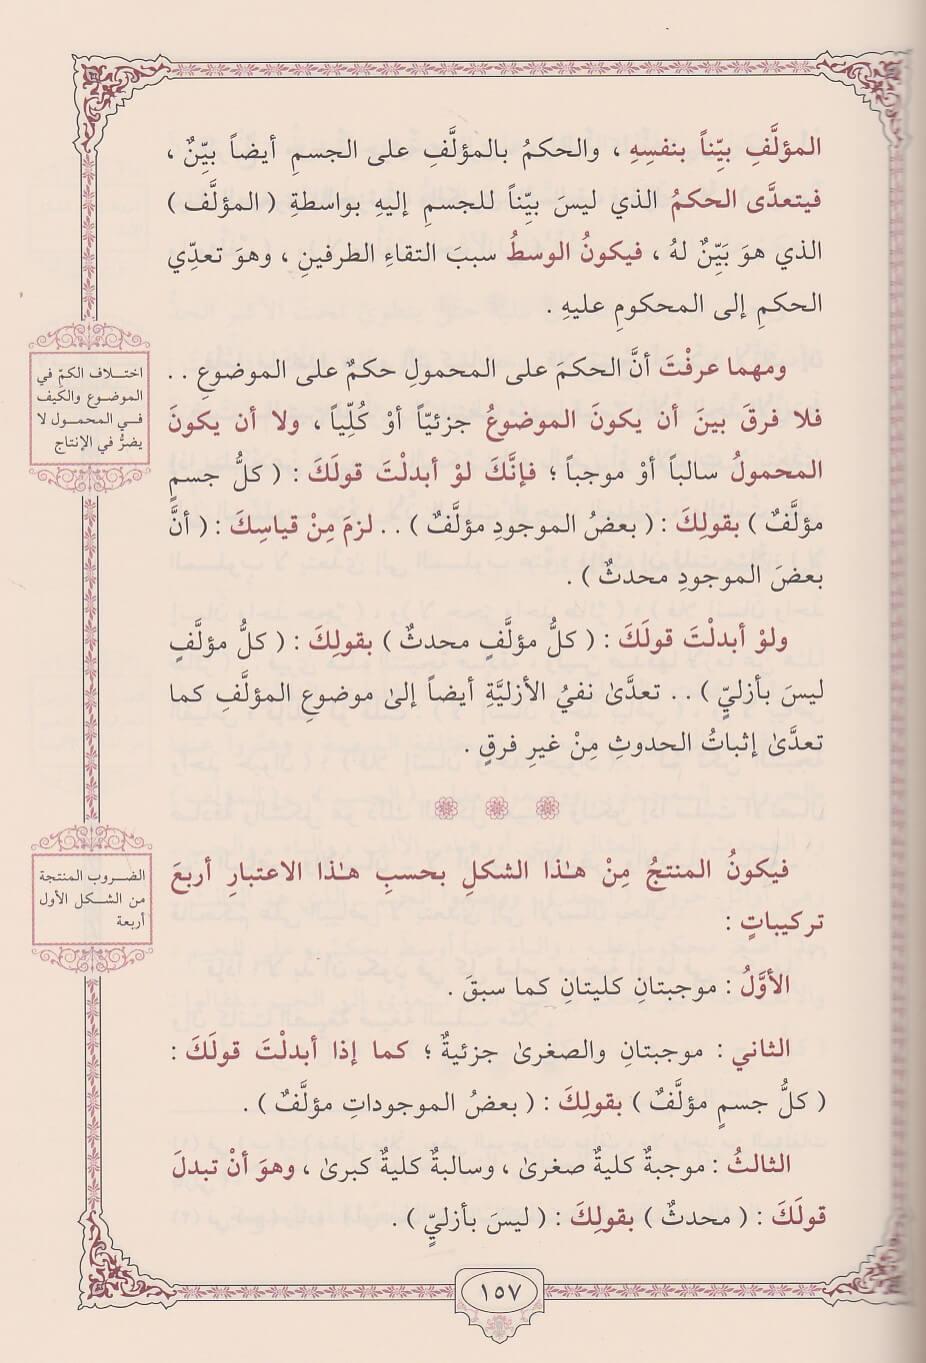 المؤلَّفِ بيِّناً بنفسِهِ ، والحكمُ بالمؤلَّفِ على الجسمِ أيضاً بيِّنٌ ،
فيتعدَّى الحكمُ الذي ليسَ بيِّناً للجسمِ إليهِ بواسطةِ ( المؤلَّف )
الذي هوَ بَيِّنٌ لهُ ، فيكونُ الوسطُ سببَ التقاءِ الطرفينِ ، وهوَ تعدِّي
الحكمِ إلى المحكومِ عليهِ .
ومهما عرفْتَ أنَّ الحكمَ على المحمولِ حكمٌ على الموضوعِ . .
فلا فرقَ بينَ أن يكونَ الموضوعُ جزئيّاً أوْ كُلِّياً ، ولا أن يكونَ
المحمولُ سالباً أوْ موجباً ؛ فإنَّكَ لوْ أبدلْتَ قولَكَ : ( كلُّ جسمٍ
مؤلَّفٌ ) بقولِكَ : ( بعضُ الموجودِ مؤلَّفٌ ) . . لزمَ مِنْ قياسِكَ : ( أنَّ
بعضَ الموجودِ محدثٌ ) .
ولوْ أبدلْتَ قولَكَ : ( كلُّ مؤلَّفٍ محدثٌ ) بقولِكَ : ( كلُّ مؤلَّفٍ
ليسَ بأزليٍّ ) . . تعدَّىٰ نفيُ الأزليَّةِ أيضاً إلىٰ موضوعِ المؤلَّفِ كما
تعدَّىٰ إثباتُ الحدوثِ مِنْ غيرِ فرقٍ .
فيكونُ المنتجُ مِنْ هـٰذا الشكلِ بحسبِ هـٰذا الاعتبارِ أربعَ
تركيباتٍ :
الأوَّلُ : موجبتانِ كليتانِ كما سبقَ .
الثاني : موجبتانِ والصغرىٰ جزئيةٌ ؛ كما إذا أبدلْتَ قولَكَ :
( كلُّ جسمٍ مؤلَّفٌ ) بقولِكَ : ( بعضُ الموجوداتِ مؤلَّفٌ ) .
الثالثُ : موجبةٌ كليةٌ صغرىٰ ، وسالبةٌ كليةٌ كبرىٰ ، وهوَ أنْ تبدلَ
قولَكَ : ( محدثٌ ) بقولِكَ : ( ليسَ بأزليٍّ ) .
اختـلاف الكمِّ في
الموضوع والكيف
فـي المحمـول لا
يضرُّ في الإنتاج
الضـروب المنتجة
من الشكـل الأول
أربعة
١٥٧